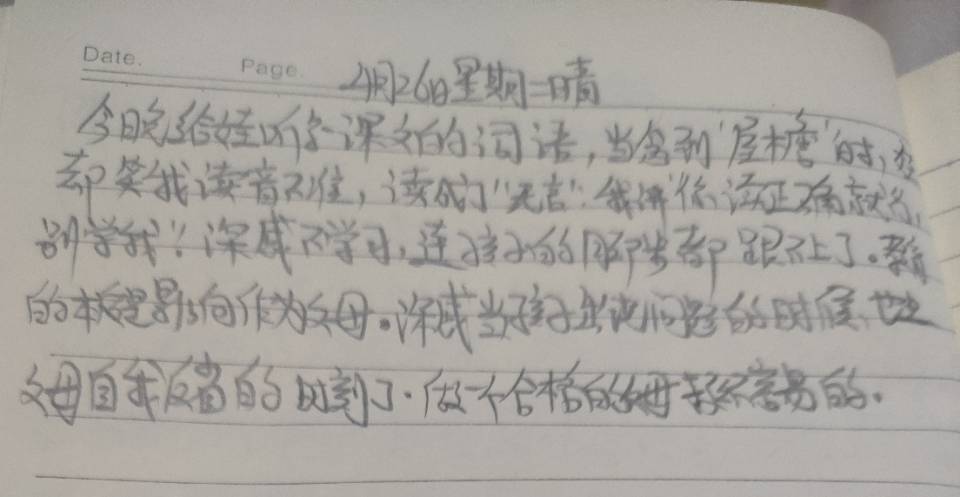 Date. Page.
4月26日星期二晴
今日晚给娃听写课文的词语，当念到"屋檐"时，
却笑我读音不准，读成了"无言"。我讲"你读正确就好，
别学我"！深感不学习，连孩子的脚步都跟不上了。教育
的本质是影响作为父母。深感当孩子出现问题的时候，也是
父母自我反省的时刻了。做一个合格的父母 不容易的。